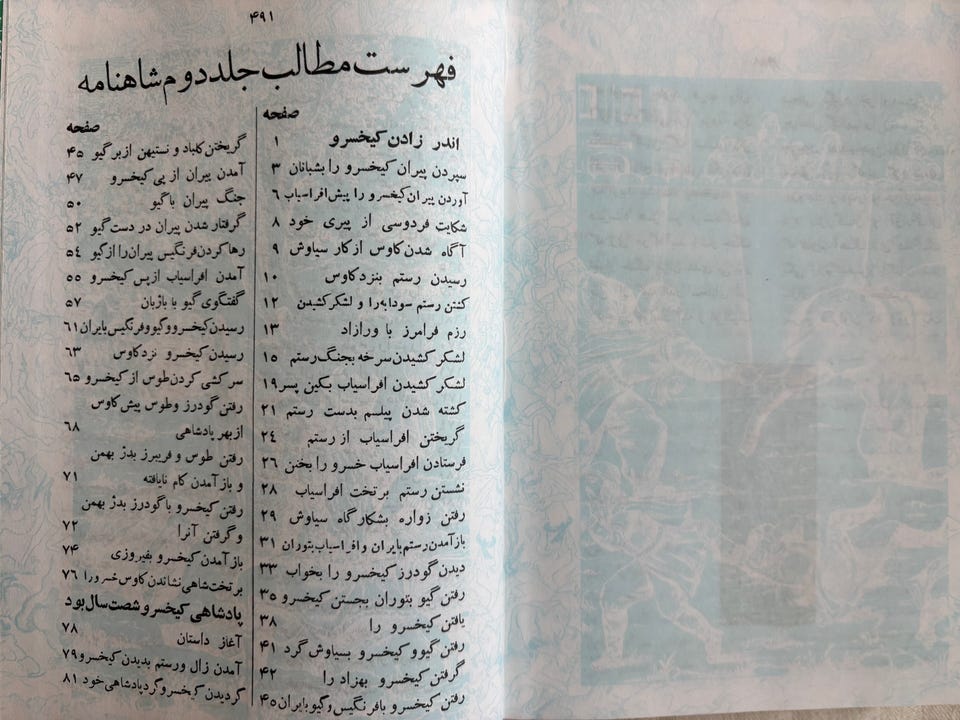 ۴۹۱
فهرست مطالب جلد دوم شاهنامه
صفحه
اندر زادن کیخسرو ۱
سپردن پیران کیخسرو را بشبانان ۳
آوردن پیران کیخسرو را پیش افراسیاب ۶
شکایت فردوسی از پیری خود ۸
آگاه شدن کاوس از کار سیاوش ۹
رسیدن رستم بنزد کاوس ۱۰
کشتن رستم سودابه را و لشکر کشیدن ۱۲
رزم فرامرز با ورازاد ۱۳
لشکر کشیدن سرخه بجنگ رستم ۱۵
لشکر کشیدن افراسیاب بکین پسر ۱۹
کشته شدن پیلسم بدست رستم ۲۱
گریختن افراسیاب از رستم ۲۴
فرستادن افراسیاب خسرو را بختن ۲۶
نشستن رستم بر تخت افراسیاب ۲۸
رفتن زواره بشکارگاه سیاوش ۲۹
باز آمدن رستم بایران و افراسیاب بتوران ۳۱
دیدن گودرز کیخسرو را بخواب ۳۳
رفتن گیو بتوران بجستن کیخسرو ۳۵
یافتن کیخسرو را ۳۸
رفتن گیو و کیخسرو بسیاوش گرد ۴۱
گرفتن کیخسرو بهزاد را ۴۲
رفتن کیخسرو با فرنگیس و گیو بایران ۴۵
صفحه
گریختن کلباد و نستیهن از بر گیو ۴۵
آمدن پیران از پی کیخسرو ۴۷
جنگ پیران با گیو ۵۰
گرفتار شدن پیران در دست گیو ۵۲
رها کردن فرنگیس پیران را از گیو ۵۴
آمدن افراسیاب از پس کیخسرو ۵۵
گفتگوی گیو با باژبان ۵۷
رسیدن کیخسرو و گیو و فرنگیس بایران ۶۱
رسیدن کیخسرو نزد کاوس ۶۳
سر کشی کردن طوس از کیخسرو ۶۵
رفتن گودرز و طوس پیش کاوس
از بهر پادشاهی ۶۸
رفتن طوس و فریبرز بدژ بهمن
و باز آمدن کام نایافته ۷۱
رفتن کیخسرو با گودرز بدژ بهمن
و گرفتن آنرا ۷۲
باز آمدن کیخسرو بفیروزی ۷۴
بر تخت شاهی نشاندن کاوس خسرو را ۷۶
پادشاهی کیخسرو شصت سال بود
آغاز داستان ۷۸
آمدن زال و رستم بدیدن کیخسرو ۷۹
گردیدن کیخسرو گرد پادشاهی خود ۸۱